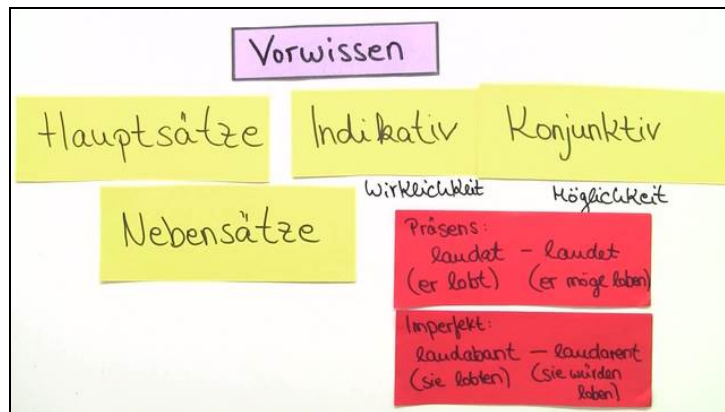 Vorwissen
Hauptsätze
Indikativ
Konjunktiv
Wirklichkeit
Möglichkeit
Nebensätze
Präsens:
laudat – laudet
(er lobt) (er möge loben)
Imperfekt:
laudabant – laudarent
(sie lobten) (sie würden
loben)